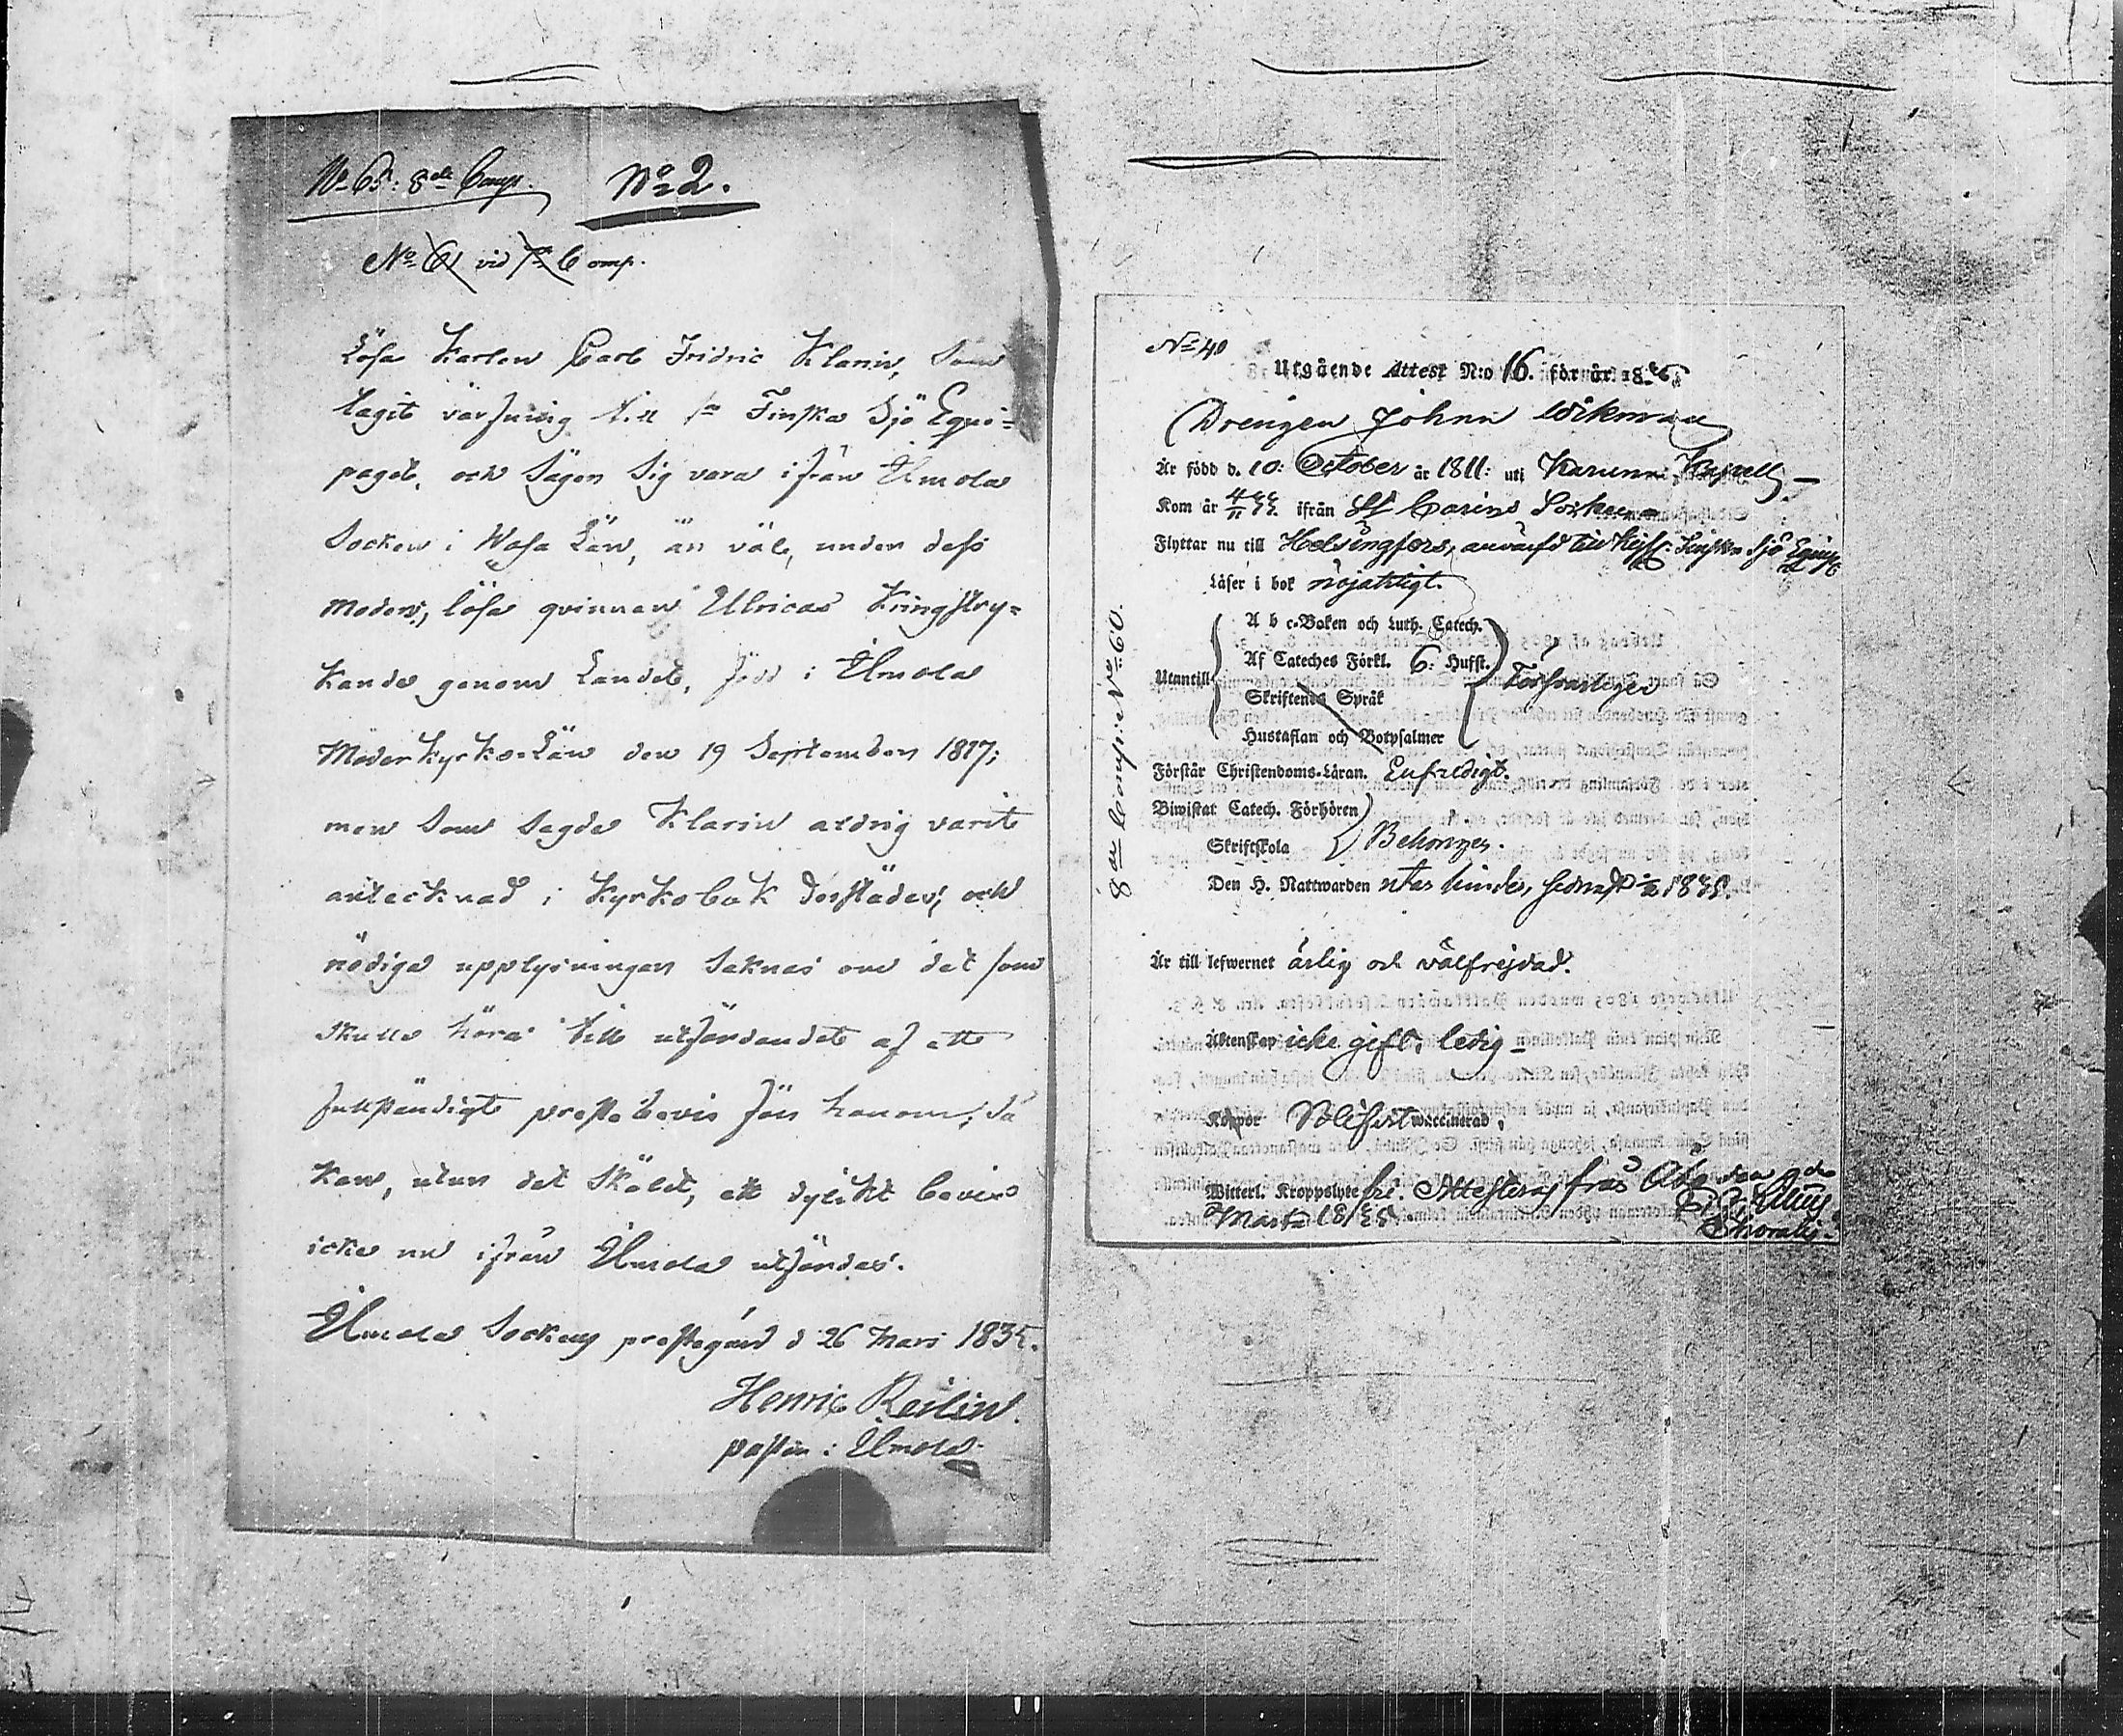 No 65: 8de Comp. No 2.
No 61 vid 7de Comp.
Lösa Karlen Carl Fridric Klarin, som
tagit värfning till 1sta Finska Sjö Equi=
paget, och säger sig vara ifrån Ilmola
Socken i Wasa Län, är väl, under dess
moders, lösa qvinnan Ulricas Kringstry=
kande genom Landet, född i Ilmola
Moderkyrko-Län den 19 September 1817;
men som sagde Klarin aldrig varit
antecknad i Kyrkobok derstädes, och
nödiga upplysningar saknas om det som
skulle höra till utfärdandet af ett
fullständigt prestebevis för honom; så
kan, utan det skäldt, ett dylikt bevis
icke nu ifrån Ilmola utfärdas.
Ilmola Sockens prestegård d 26 Mars 1835.
Henric Reilin.
pastor i Ilmola
No 40
Utgående Attest N:o 16. för år 18
Drengen Johan Wikman
Är född d. 10: October år 1811: uti Karuna Kapell
Kom år ifrån St Carins Socken
Flyttar nu till Helsingfors, antagen till Kejserl: Finska Sjö Equip
Läser i bok nöjaktigt.
A b c-Boken och Luth. Catech.
Af Cateches Förkl. 6: Hufst.
Utantill Försvarligen
Skriftenes Språk
Hustaflan och Botpsalmer
Förstår Christendoms-Läran. Enfaldigt.
Biwistat Catech. Förhören
Skriftskola Behörigen.
Den H. Nattwarden utan hinder, sednast 1835.
8de Comp: No 60.
Är till lefwernet ärlig och wälfrejdad.
Äktenskap icke gift, ledig
Koppor waccinerad.
Witterl. Kroppslyte fri. Attesteras från Åbo den 2dra
Martii 1835